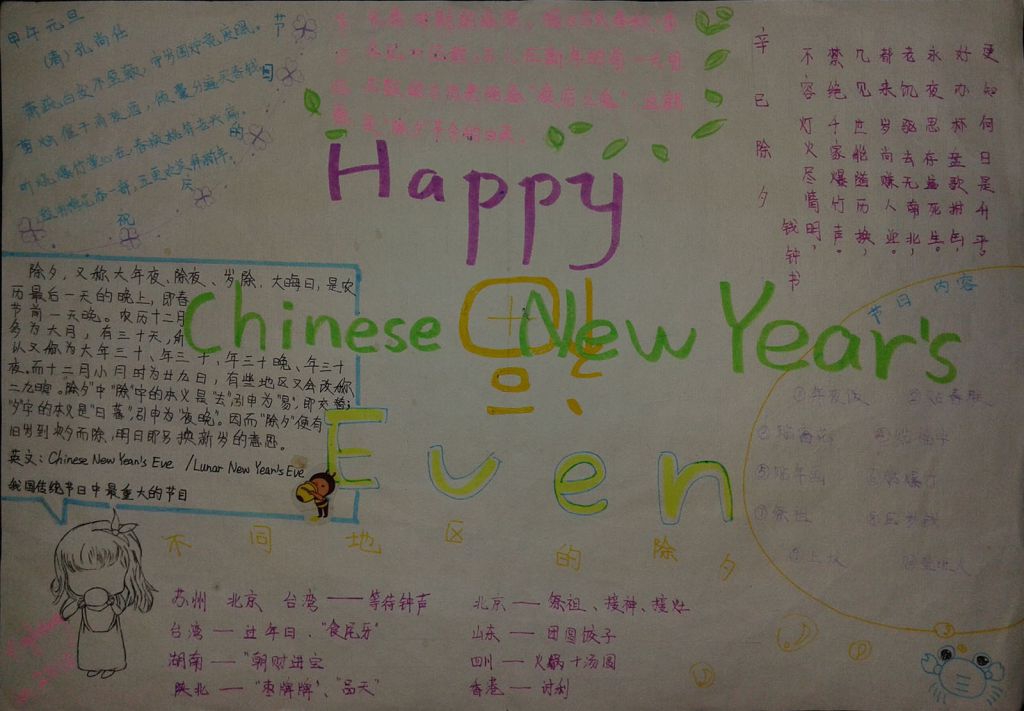 甲午元旦
(清)孔尚任
萧疏白发不盈颠，守岁围炉竟废眠。
剪烛催干消夜酒，倾囊分遍买春钱。
听烧爆竹童心在，看换桃符老兴偏。
鼓角梅花添一部，五更欢笑拜新年。
节
日
的
庆
祝
辛巳除夕
钱钟书
更知何日是升平。
好办杯盘歌拊缶，
永夜思存盍死生。
老饥驱去无南北，
都来岁尚赚人
几见世能随历换，
禁绝千家爆竹声。
不容灯火尽情明，
Happy
Chinese New Year's
Even
除夕，又称大年夜、除夜、岁除、大晦日，是农
历最后一天的晚上，即春
节前一天晚。农历十二月
多为大月，有三十天，所
以又称为大年三十、年三十、年三十晚、年三十
夜。而十二月小月时为廿九日，有些地区又会改称
二九暝。"除夕"中"除"字的本义是"去"，引申为"易"，即交替；
"夕"字的本义是"日暮"，引申为"夜晚"。因而"除夕"便有
旧岁到此夕而除，明日即另换新岁的意思。
英文：Chinese New Year's Eve /Lunar New Year's Eve
我国传统节日中最重大的节日
节日内容
①年夜饭 ②贴春联
③贴窗花 ④贴福字
⑤贴年画 ⑥放爆竹
⑦祭祖 ⑧压岁钱
⑨上坟
不同地区的除夕
苏州 北京 台湾——等待钟声
台湾——过年日、"食尾牙"
湖南——"朝财进宝
陕北——"枣牌牌"、"品天"
北京——祭祖、接神、接灶
山东——团圆饺子
四川——火锅+汤圆
香港——讨利